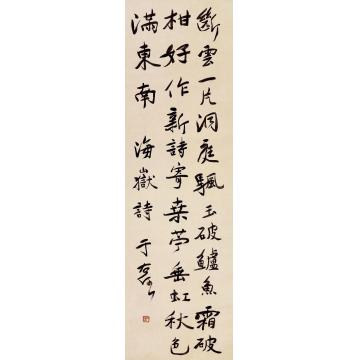 斷雲一片洞庭颿玉破鱸魚霜破
柑好作新詩寄桒苧垂虹秋色
滿東南 海嶽詩 于右任